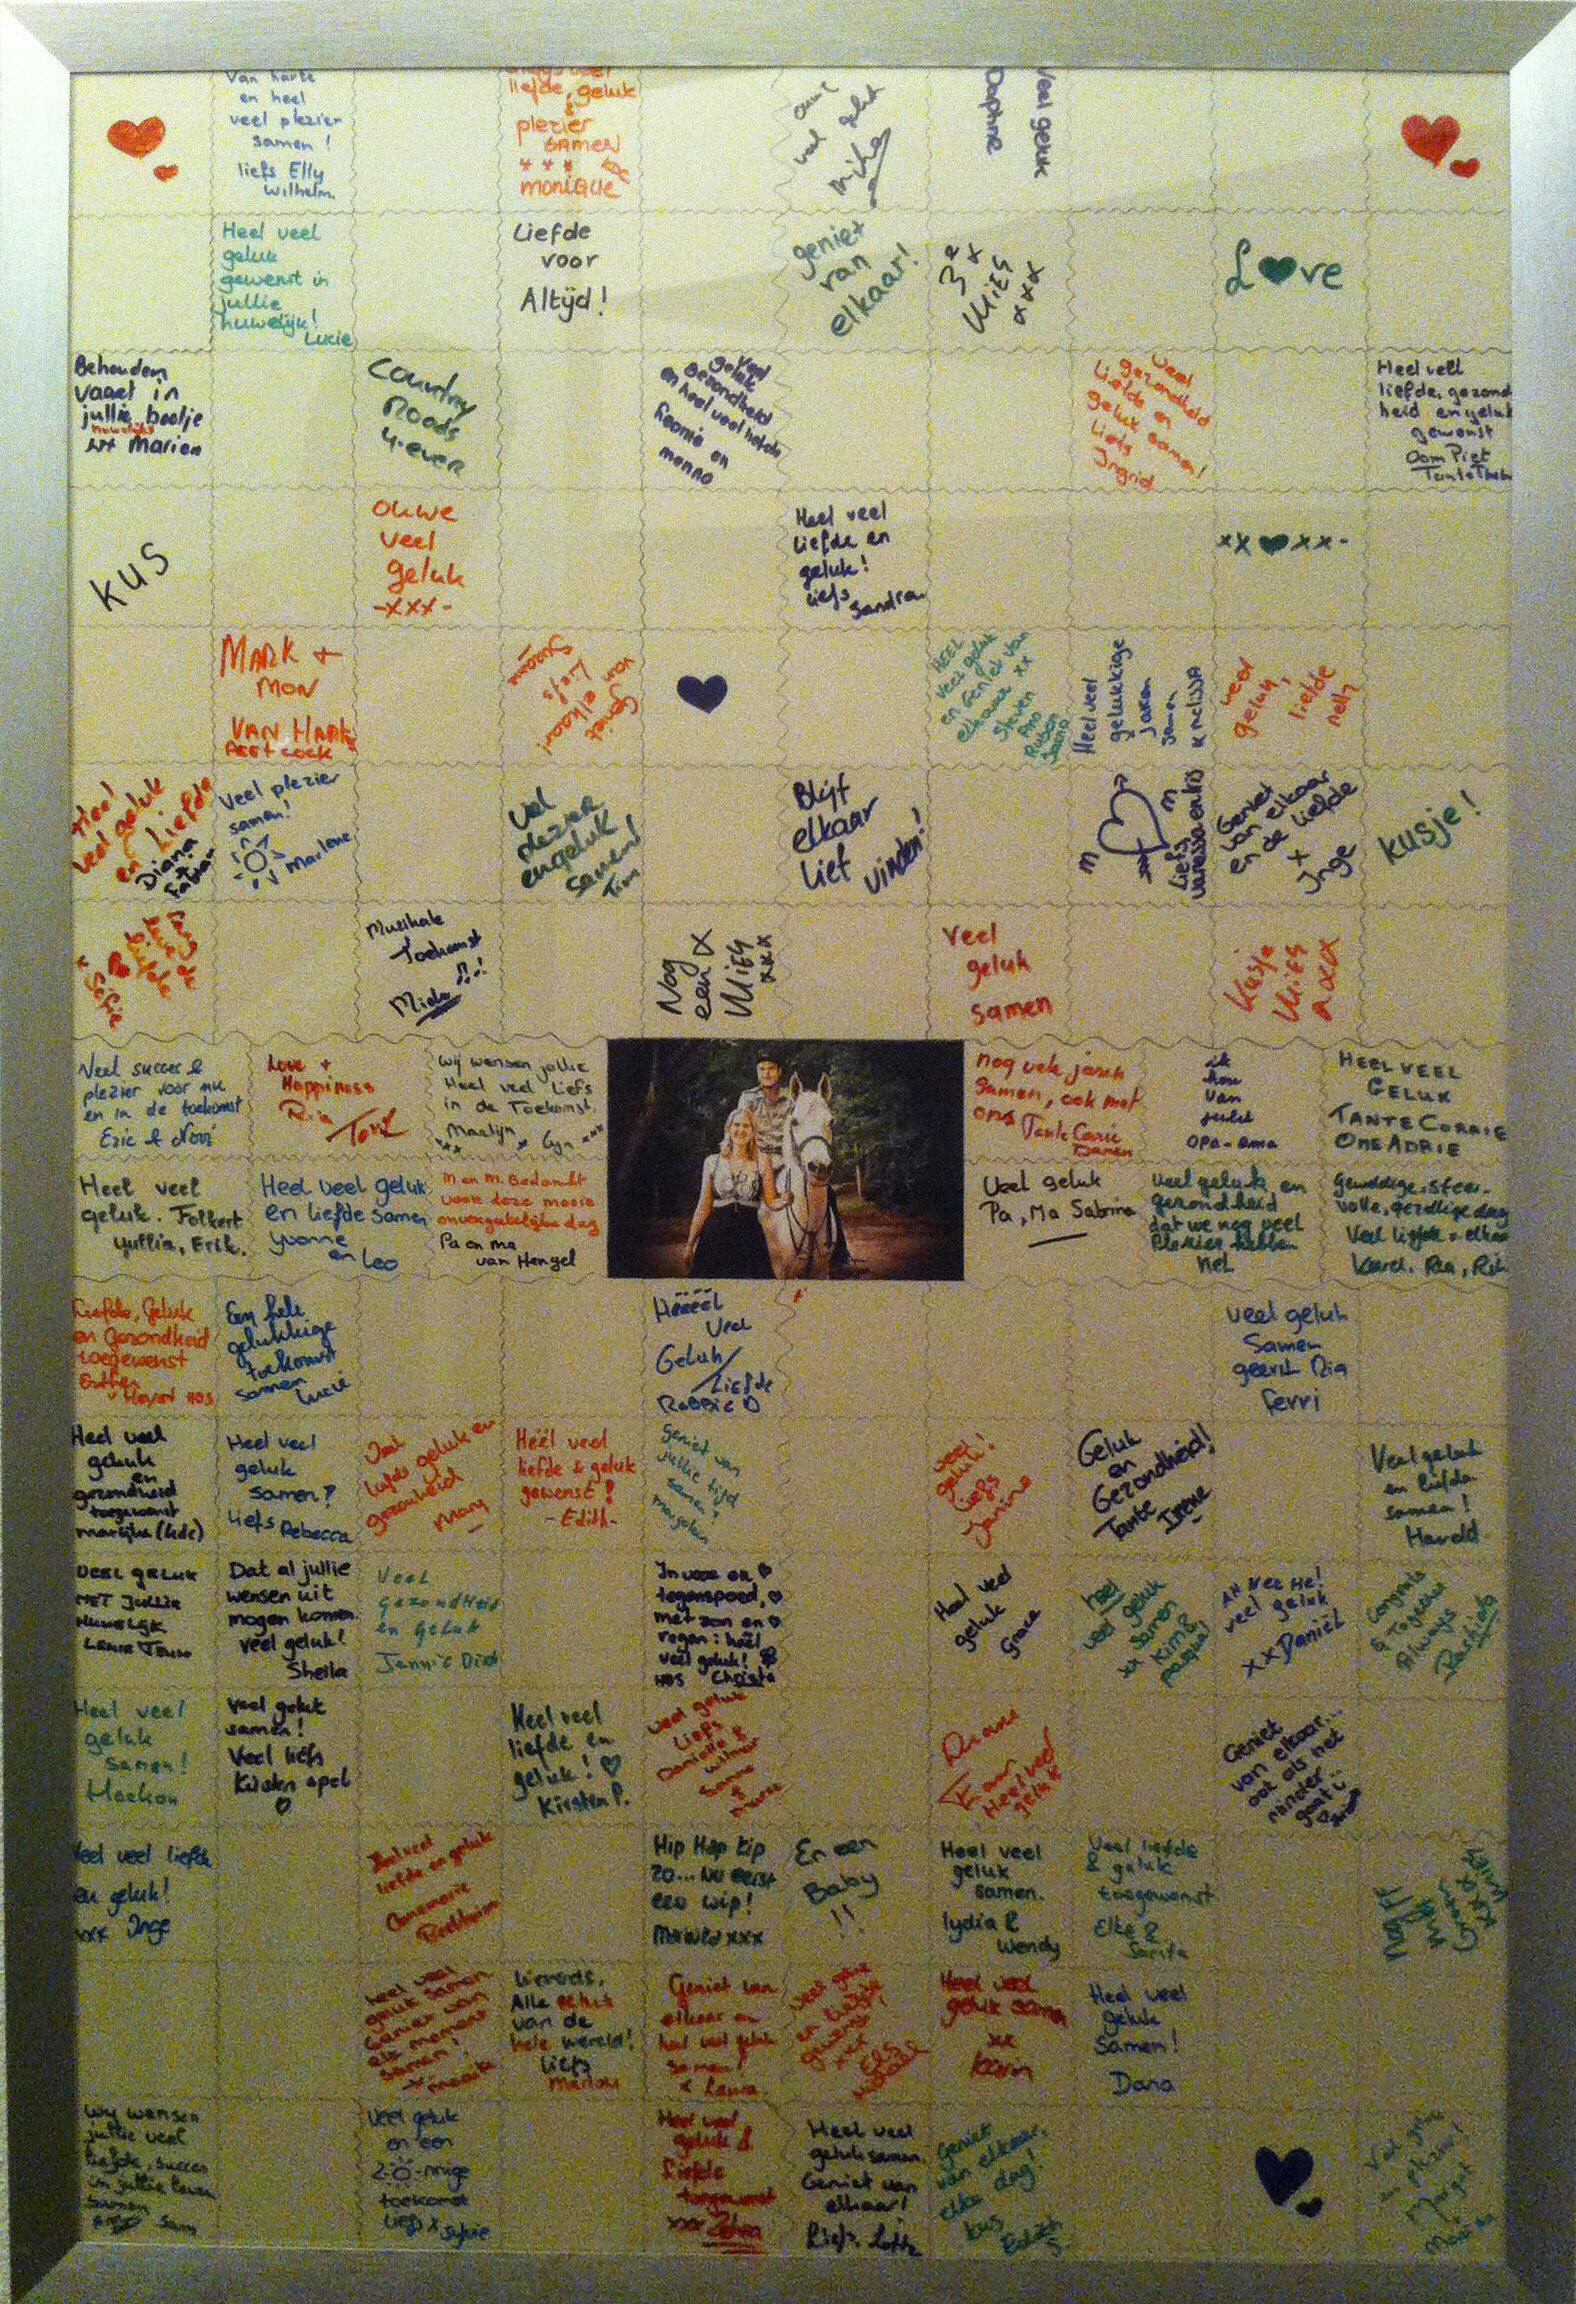 Van harte
en heel
veel plezier
samen!
liefs Elly
Wilhelm.
liefde, geluk
&
plezier
SAMEN
monique
veel geluk
Mike
Veel geluk
Daphne
Heel veel
geluk
gewenst in
jullie
huwelijk!
Lucie
Liefde
voor
Altijd!
geniet
van
elkaar!
3e
x
Mies
xxx
Love
Behouden
vaart in
jullie bootje
huwelijks
xx Marion
Country
Roads
4-ever
Veel
geluk
Gezondheid
en heel veel liefde
en
menno
Veel
gezondheid
Liefde en
geluk samen!
Liefs
Ingrid
Heel veel
liefde, gezond
heid en geluk
gewenst
Oom Piet
Tante
KUS
Ouwe
veel
geluk
-xxx-
Heel veel
liefde en
geluk!
liefs
Sandra
xx xx-
MARK +
MON
VAN HARTE
Geniet
van elkaar!
Liefs
HEEL
veel geluk
en Geniet van
elkaar xx
Steven
Ruben
Heel veel
gelukkige
jaren
samen
x melissa
veel
geluk,
liefde
Heel
veel geluk
en Liefde
Diana
+
Fabian
Veel plezier
samen!
Marlene
Veel
plezier
en geluk
samen!
Tim
Blijf
elkaar
lief vinden!
m
m
Liefs
vanessa en kris
Geniet
van elkaar
en de liefde
x
Inge
Kusje!
Lang
leve de
liefde
x Sofie
Muzikale
Toekomst
Mieke
Nog
een x
Mies
xxx
Veel
geluk
samen
Kusje
Mies
xxx
Veel succes &
plezier voor nu
en in de toekomst
Eric & Novi
Love +
Happiness
Ria
Ton
Wij wensen jullie
Heel veel liefs
in de Toekomst.
Martijn
xxx
nog vele jaren
samen, ook met
ons Tante Corrie
Damen
ik
hou
van
jullie
opa-oma
HEEL VEEL
GELUK
TANTE CORRIE
OME ADRIE
Heel veel
geluk. Folkert
Yullia, Erik.
Heel veel geluk
en liefde samen
Yvonne
en Leo
M en M. Bedankt
voor deze mooie
onvergetelijke dag
Pa en ma
van Hengel
Veel geluk
Pa, Ma Sabrina
Veel geluk en
gezondheid
dat we nog veel
plezier hebben
Nel
Geweldige, sfeer-
volle, gezellige dag
Veel liefde
Karel, Ria,
Liefde, Geluk
en Gezondheid
toegewenst
Esther
Een hele
gelukkige
toekomst
samen
Lucie
Hëëëël
Veel
Geluk/
Liefde
Robbie D
Veel geluk
Samen
geert Ria
ferri
Heel veel
geluk
en
gezondheid
toegewenst
Martijn
Heel veel
geluk
samen!
liefs Rebecca
Veel
liefde geluk en
gezondheid
Mary
Héél veel
liefde & geluk
gewenst!
-Edith-
Geniet van
jullie tijd
samen!
Veel
geluk!
Liefs
Janine
Geluk
en
Gezondheid!
Tante Irene
Veel geluk
en liefde
samen!
Harold
VEEL GELUK
MET JULLIE
HUWELIJK
Dat al jullie
wensen uit
mogen komen.
Veel geluk!
Sheila
Veel
gezondheid
en Geluk
Jannie Dirk
In voor en
tegenspoed,
met zon en
regen: heel
veel geluk!
Christa
Heel veel
geluk
Grace
heel
veel geluk
samen
xx Kim &
pasqual
AH NEE HE!
veel geluk
xx Daniël
Congrats
&
Always
Heel veel
geluk
samen!
Veel geluk
samen!
Veel liefs
Kirsten apel
Heel veel
liefde en
geluk!
Kirsten P.
Veel geluk
Liefs
Danielle &
Wilmar
Sanne
&
Heel veel
geluk
Geniet
van elkaar...
ook als het
minder
gaat..
Heel veel liefde
en geluk!
xxx Inge
Heel veel
liefde en geluk
Annemarie
Hip Hop kip
zo... nu eerst
een wip!
xxx
En een
Baby
!!
Heel veel
geluk
samen.
lydia &
Wendy
Veel liefde
& geluk
toegewenst
Elke &
Sarita
heel veel
geluk samen
Geniet van
elk moment
samen!
x
Lieverds,
Alle geluk
van de
hele wereld!
liefs
Marlou
Geniet van
elkaar en
heel veel geluk
samen!
x Laura
Veel geluk
en liefde
gewenst
xxx
Heel veel
geluk samen
xx
Karin
Heel veel
geluk
Samen!
Dana
Wij wensen
jullie veel
liefde, succes
in jullie leven
samen
Veel geluk
en een
zonnige
toekomst
Liefs x Sylvie
Heel veel
geluk &
Liefde
toegewenst
xxx
Heel veel
geluk samen.
Geniet van
elkaar!
Liefs. Lotte
Geniet
van elkaar.
elke dag!
kus
Edith
S.
Veel
en plezier!